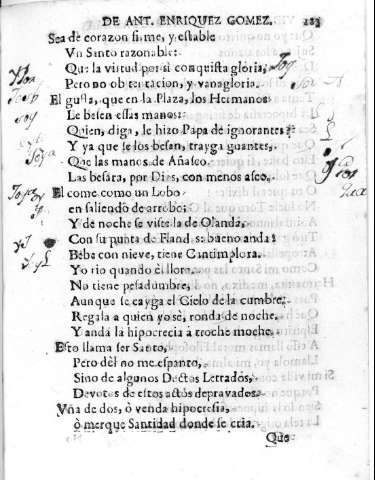 DE ANT. ENRIQUEZ GOMEZ. 183
Sea de corazon firme, y estable
Vn Santo razonable:
Que la virtud por si conquista gloria,
Pero no obstentacion, y vanagloria.
El gusta, que en la Plaza, los Hermanos
Le besen essas manos:
Quien, diga, le hizo Papa de ignorantes?
Y ya que se los besan, trayga guantes,
Que las manos de Añasco
Las besàra, por Dios, con menos asco.
El come como un Lobo
en saliendo de arrobo;
Y de noche se viste la de Olanda,
Con su punta de Fland s: bueno anda!
Bebe con nieve, tiene Cantimplora.
Yo rio quando èl llora.
No tiene pesadumbre,
Aunque se cayga el Cielo de la cumbre,
Regala a quien yo sè, ronda de noche.
Y anda la hipocrecia à troche moche.
Esto llama ser Santo,
Pero dèl no me espanto,
Sino de algunos Doctos Letrados,
Devotos de estos actos depravados.
Vña de dos, ò venda hipocresia,
ò merque Santidad donde se cria.
Que